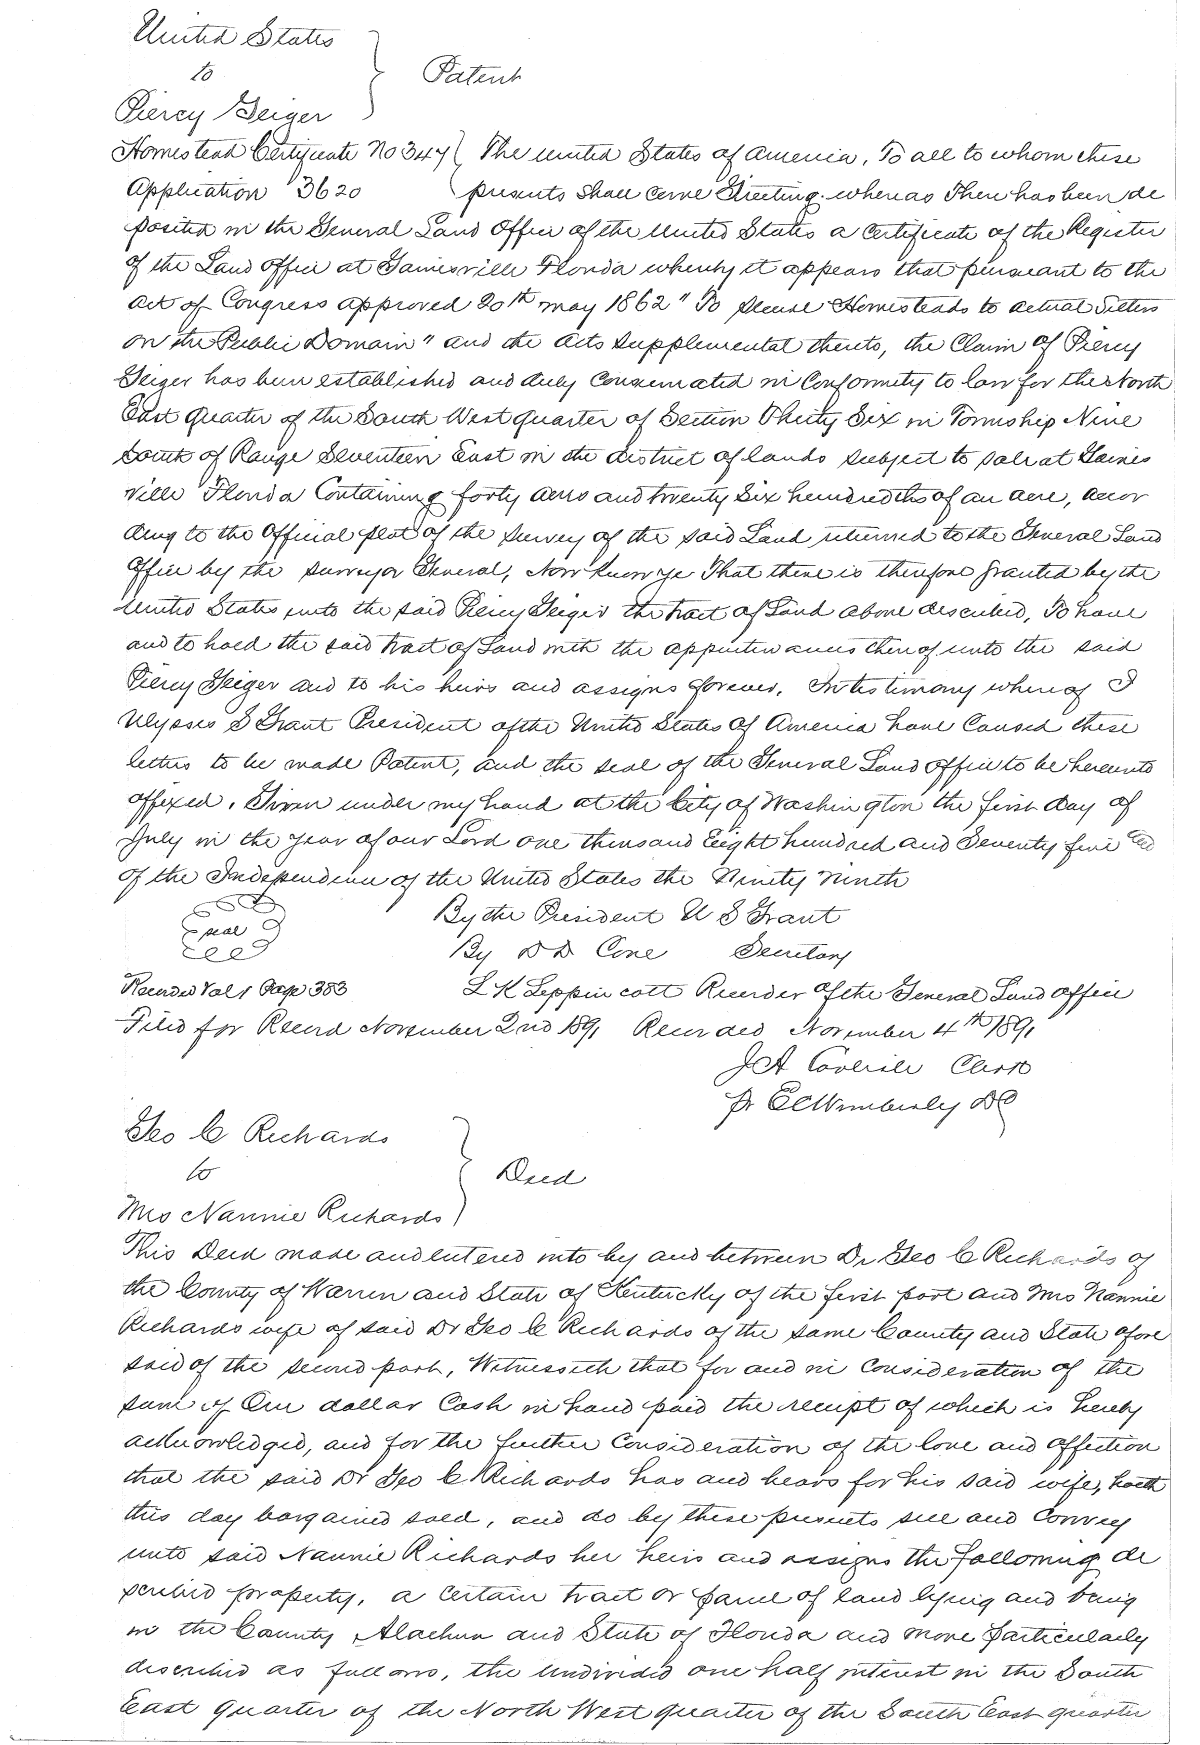 United States
to
Patent
Piercy Geiger
Homestead Certificate No 347 The United States of America, To all to whom these
Application 3620 presents shall come Greeting. whereas There has been de
posited in the General Land Office of the United States a Certificate of the Register
of the Land office at Gainesville Florida whereby it appears that pursuant to the
act of Congress approved 20th may 1862 "To secure Homesteads to actual Setlers
on the Public Domain" and the acts supplemental thereto, the Claim of Piercy
Geiger has been established and duly consumated in Conformity to law for the North
East quarter of the South West quarter of Section Thirty Six in Township Nine
South of Range Seventeen East in the district of lands subject to sale at Gaines
ville Florida Containing forty acres and twenty six hundredths of an acre, accor
ding to the Official plat of the survey of the said Land returned to the General Land
Office by the surveyor General, Now know ye That there is therefore granted by the
United States unto the said Piercy Geiger the tract of Land above described, To have
and to hold the said tract of Land with the appurtenances thereof unto the said
Piercy Geiger and to his heirs and assigns forever. In testimony whereof I
Ulysses S Grant President of the United States of America have Caused these
letters to be made Patent, and the seal of the General Land office to be hereunto
affixed. Given under my hand at the City of Washington the first day of
July in the year of our Lord one thousand Eight hundred and Seventy five and
of the Independence of the United States the Ninety ninth
seal By the President U S Grant
By D D Cone Secretary
Recorded Vol 1 Page 383 L K Leppin cott Recorder of the General Land office
Filed for Record November 2nd 1891 Recorded November 4th 1891
J A Carlisle Clerk
pr E C Wimberly DC
Geo C Richards
to
Deed
Mrs Nannie Richards
This Deed made and entered into by and between Dr Geo C Richards of
the County of Warren and State of Kentucky of the first part and Mrs Nannie
Richards wife of said Dr Geo C Richards of the same County and State afore
said of the second part, Witnesseth that for and in consideration of the
sum of One dollar Cash in hand paid the receipt of which is hereby
acknowledged, and for the further Consideration of the love and affection
that the said Dr Geo C Richards has and bears for his said wife, hath
this day bargained sold, and do by these presents sell and Convey
unto said Nannie Richards her heirs and assigns the following de
scribed property, a certain tract or parcel of land lying and being
in the County Alachua and State of Florida and more particularly
described as follows, the undivided one half interest in the South
East quarter of the North West quarter of the South East quarter